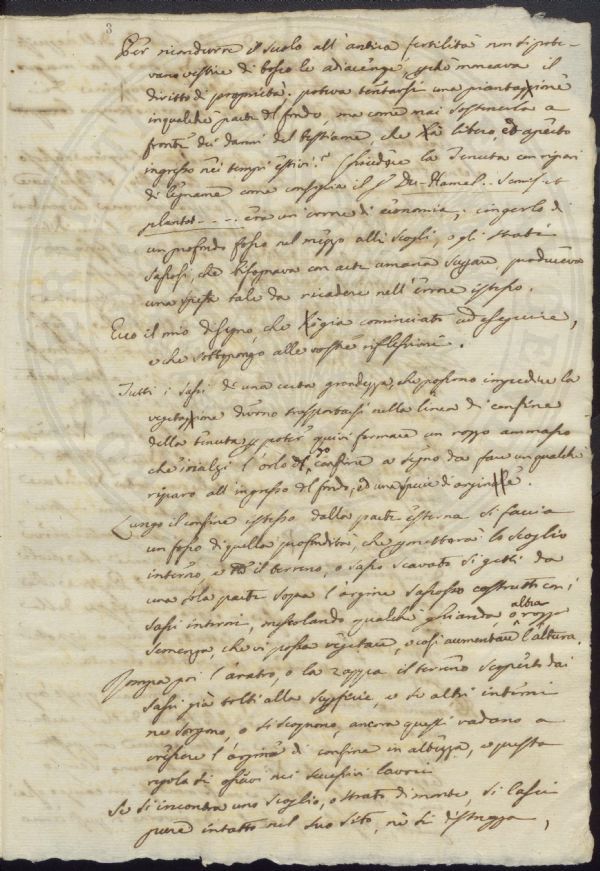 3
Per ricondurre il suolo all'antica fertilità non si pote-
vano vestire di bosco le adiacenze, perchè mancava il
diritto di proprietà. poteva tentarsi una piantazione
in qualche parte del fondo, ma come mai sostenerla a
fronte dei danni del bestiame che ha libero, ed aperto
ingresso nei tempi estivi? Chiudere la Tenuta con ripari
di legname come consiglia il S. Du-Hamel.. Semis et
plantat .... era un errore di economia; cingerlo di
un profondo fosso nel mezzo alli scogli, o gli strati
sassosi, che bisognava con arte umana segare produceva
una spesa tale da ricadere nell'errore istesso.
Ecco il mio disegno, che ho già cominciato ad eseguire,
e che sottopongo alle vostre riflessioni.
Tutti i sassi di una certa grandezza che possono impedire la
vegetazione devono trasportarsi nella linea di confine
della tenuta per poter quivi formare un rozzo ammasso
che inalzi l'orlo del confine a segno da fare un qualche
riparo all'ingresso del fondo, ed una specie di argine.
Lungo il confine istesso dalla parte esterna si faccia
un fosso di quella profondità, che permetterà lo scoglio
interno, e il terreno, o sasso scavato si getti da
una sola parte sopra l'argine sassoso costrutto con i
sassi interni, mescolando qualche ghianda, o altra rozza
semenza, che vi possa vegetare, e così aumentare l'altura.
Rompa poi l'aratro, o la zappa il terreno scoperto dai
sassi già tolti alla superficie, e se altri interni
ne sorgono, o si scoprono, ancora questi vadano a
crescere l'argine di confine in altezza, e questa
regola si osservi nei successivi lavori
Se si incontra uno scoglio, o strato di monte, si lasci
pure intatto nel suo sito, nè si distrugga,